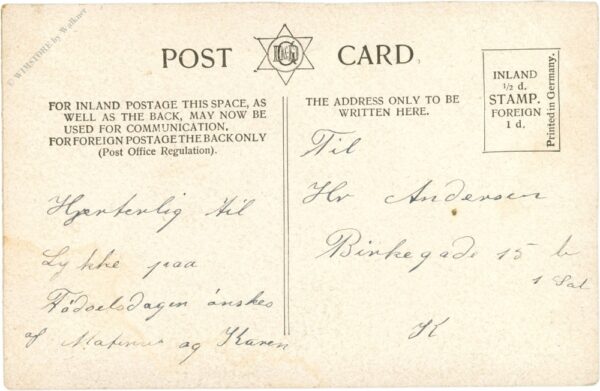 © WIMSTORE by Walkner
POST CARD
INLAND
½ d.
STAMP.
FOREIGN
1 d.
Printed in Germany.
FOR INLAND POSTAGE THIS SPACE, AS
WELL AS THE BACK, MAY NOW BE
USED FOR COMMUNICATION.
FOR FOREIGN POSTAGE THE BACK ONLY
(Post Office Regulation).
THE ADDRESS ONLY TO BE
WRITTEN HERE.
Hjerterlig til
Lykke paa
Fødselsdagen ønskes
af og Karen
Til
Hr Andersen
Birkegade 15 b
1 Sal
K